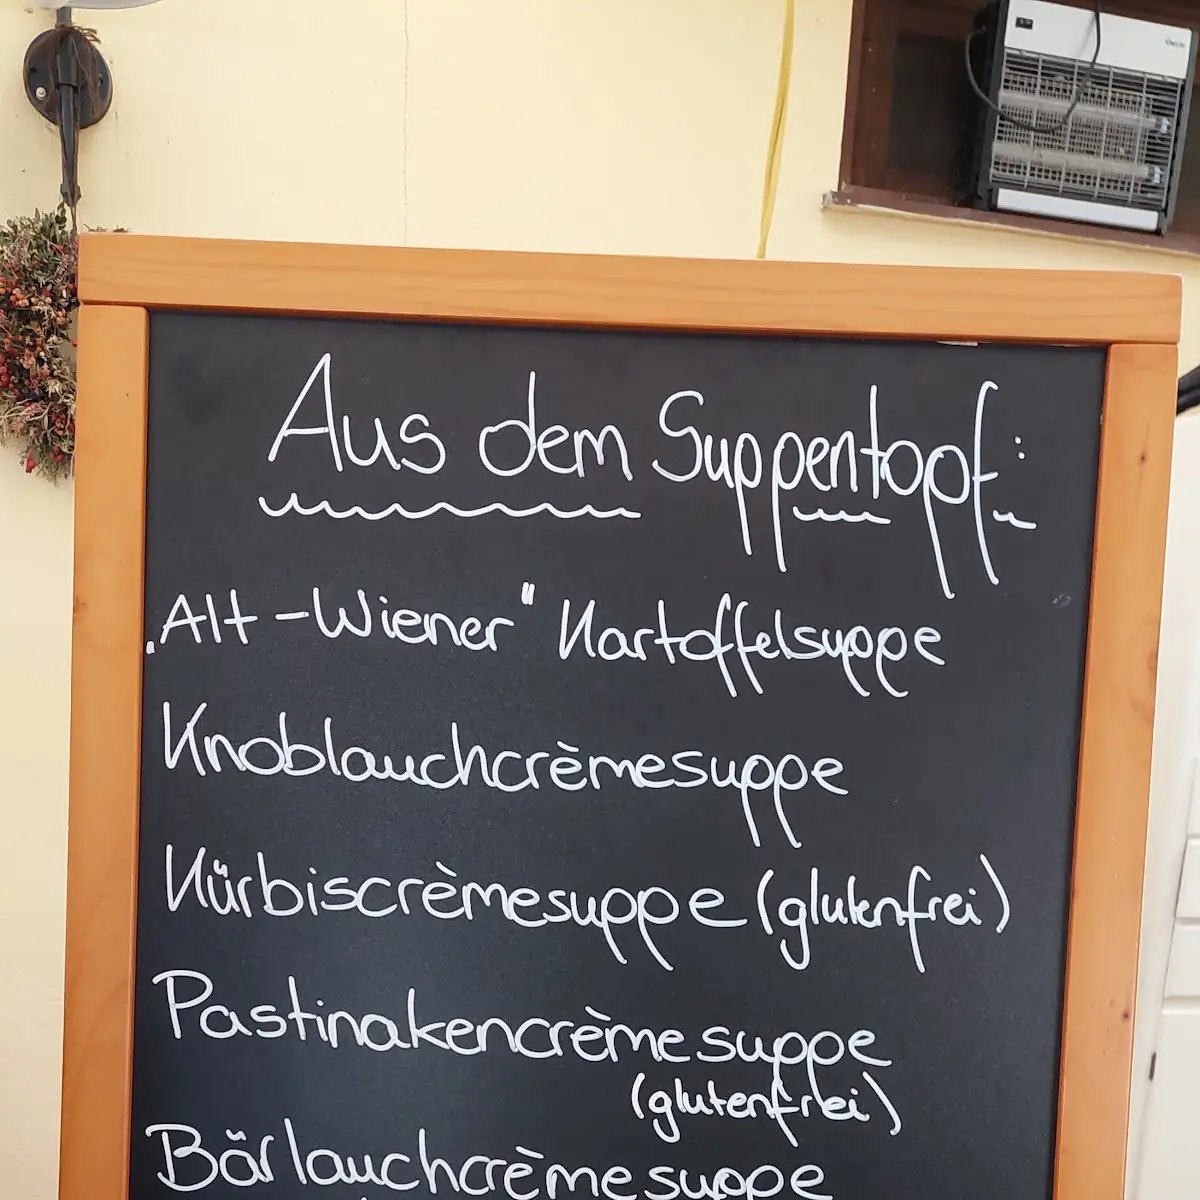 Aus dem Suppentopf:
„Alt-Wiener" Kartoffelsuppe
Knoblauchcrèmesuppe
Kürbiscrèmesuppe (glutenfrei)
Pastinakencrèmesuppe
(glutenfrei)
Bärlauchcrèmesuppe